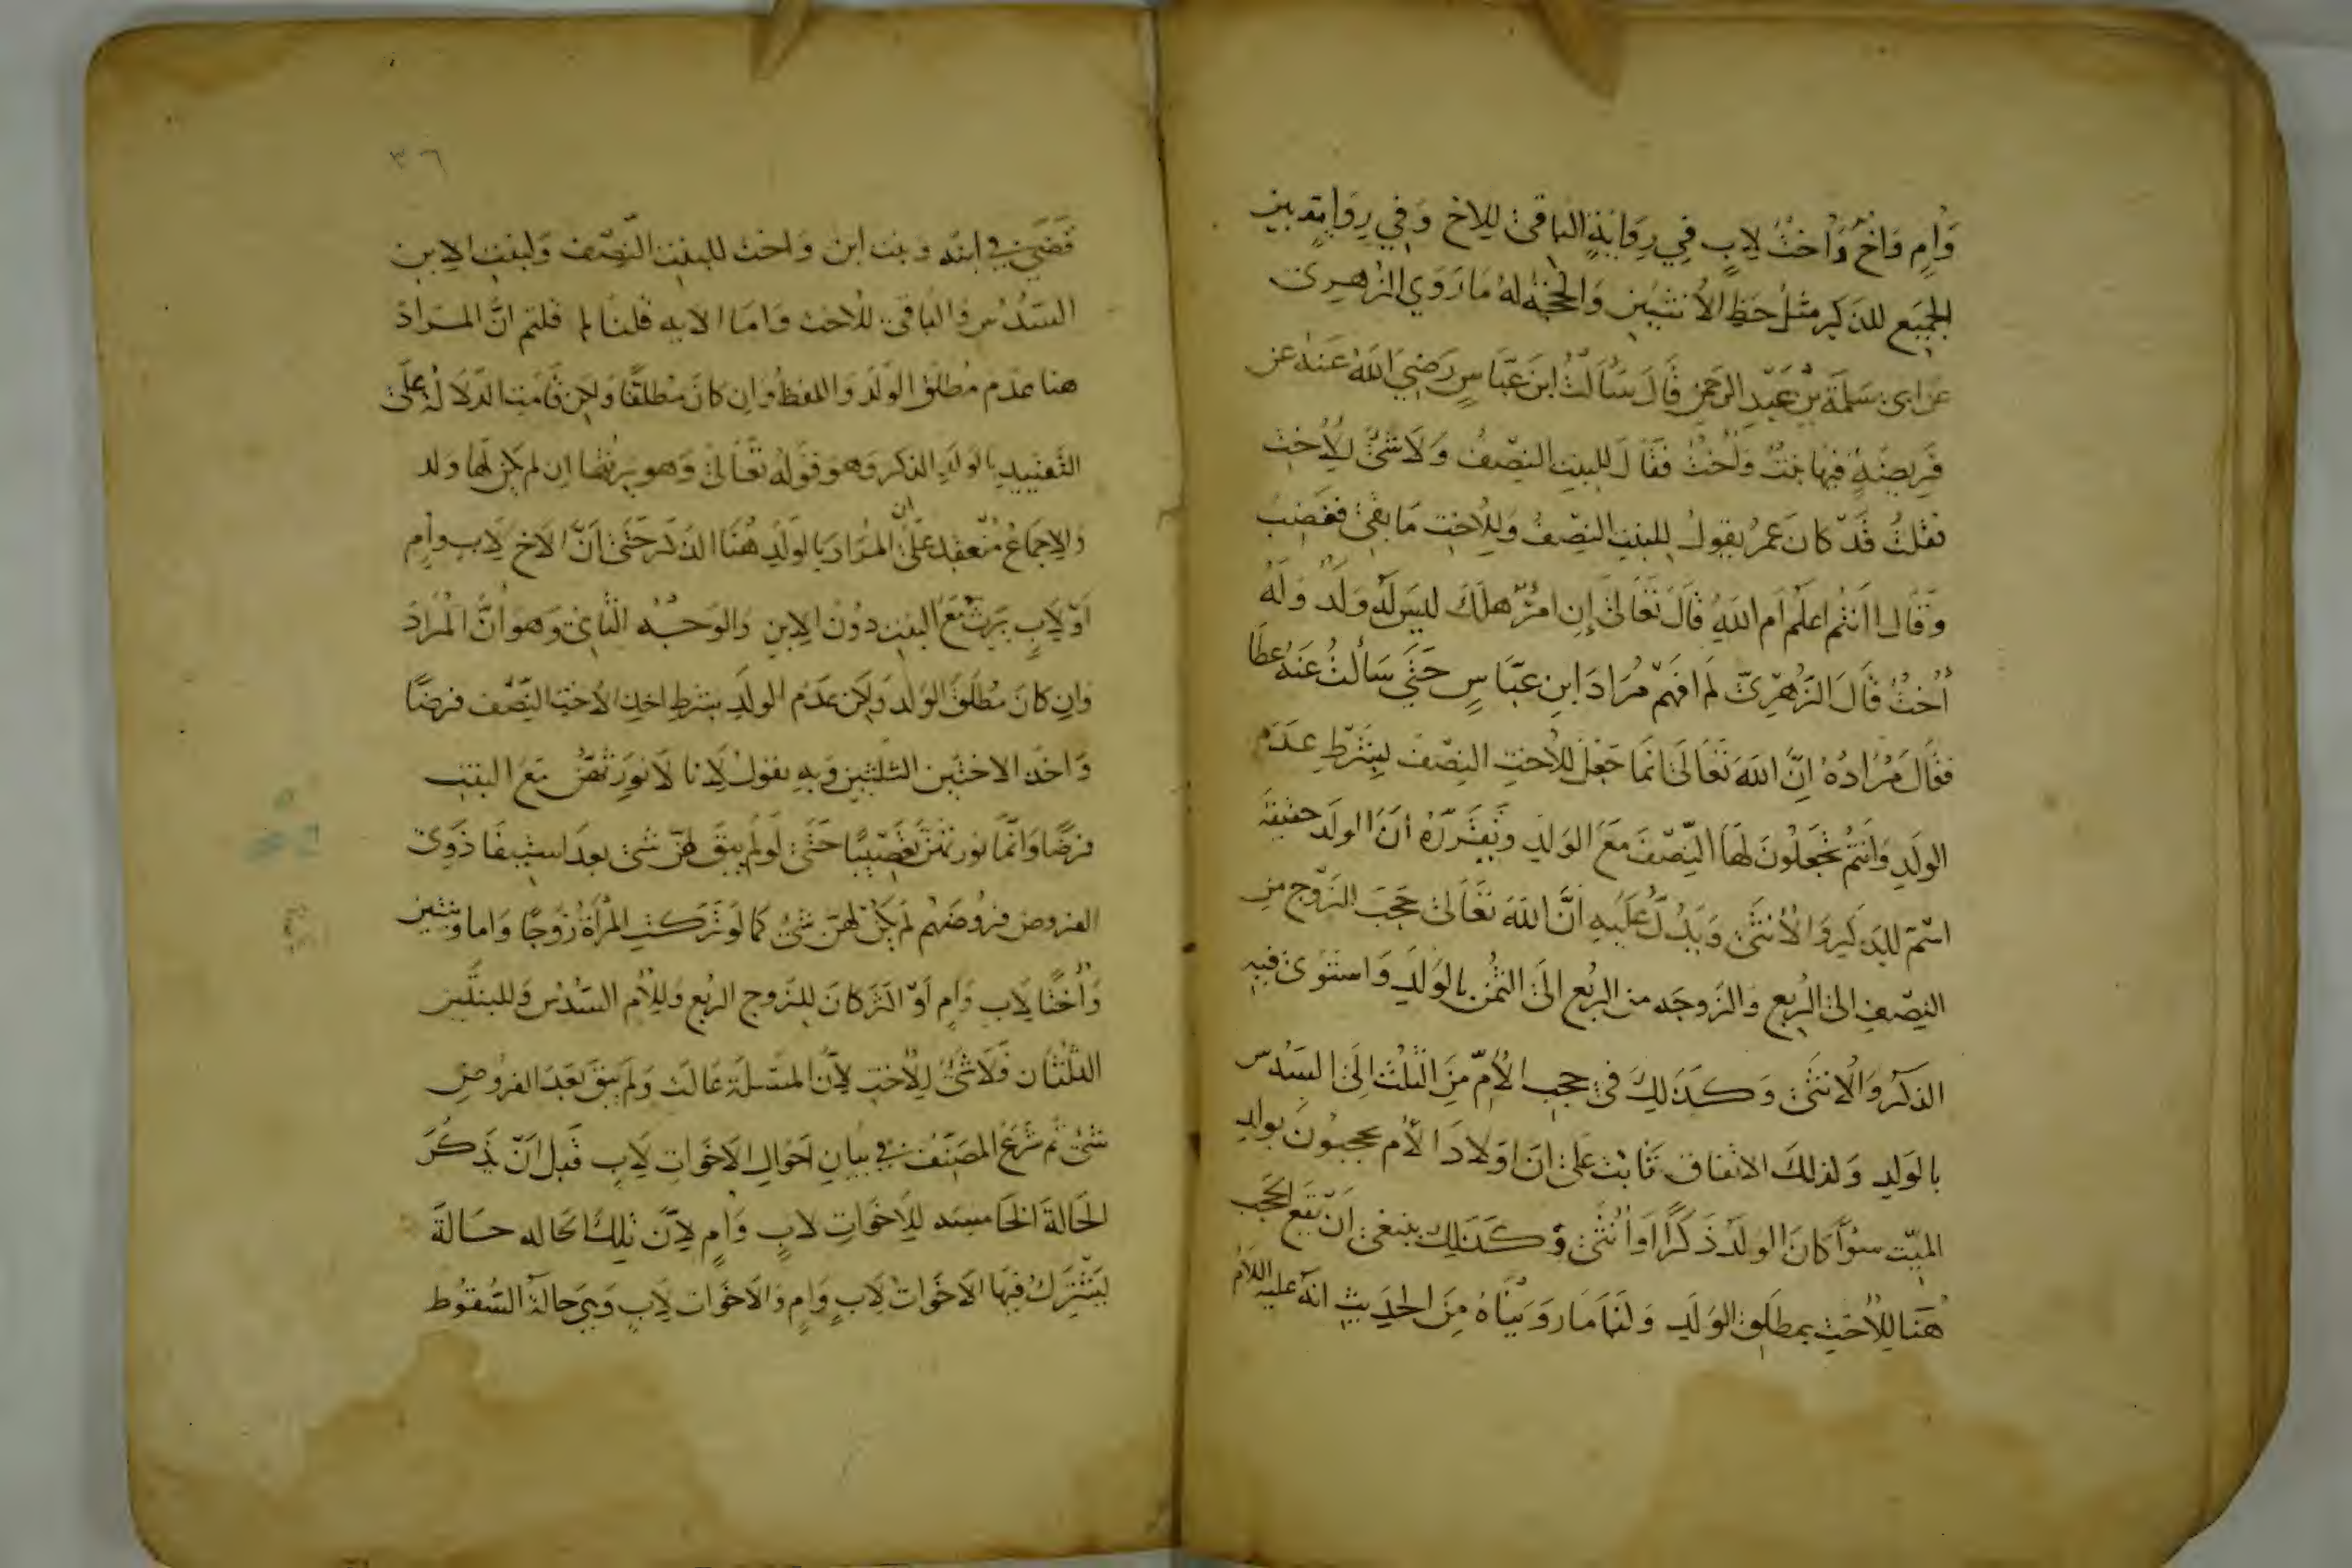 وَأُمٍ وَأَخٌ وَأُخْتٌ لِأَبٍ فِي رِوَايَةٍ الباقي لِلاخ وَفِي رِوَايَةٍ بين
الجميع للذكر مثل حظ الأنثيين والحجة له ما روي الزهري
عن ابى سلمة بن عبد الرحمن قال سألت ابن عباس رضي الله عنه عن
فريضة فيها بنت واخت فقال للبنت النصف ولا شئ للأخت
فقلت قد كان عمر يقول للبنت النصف وللاخت ما بقي فغضب
وقال اانتم اعلم ام الله قال تعالى إن امرؤ هلك ليس له ولد وله
أخت قال الزهري لم افهم مراد ابن عباس حتى سألت عنه عطا
فقال مراده ان الله تعالى انما جعل للأخت النصف بشرط عدم
الولد وانتم تجعلون لها النصف مع الولد وتقرره أن الولد حقيقة
اسم للذكر والأنثى ويدل عليه ان الله تعالى حجب الزوج من
النصف الى الربع والزوجه من الربع الى الثمن بالولد واستوى فيه
الذكر والانثى وكذلك في حجب الأم من الثلث الى السدس
بالولد ولذلك الاتفاق ثابت على ان اولاد الأم يحجبون بولد
الميت سوآ كان الولد ذكرا او أنثى وكذلك ينبغى ان يقع الحجب
هنا للأخت بمطلق الولد ولنا ما رويناه من الحديث انه عليه السلام
٣٦
قضى في ابنه وبنت ابن واخت للبنت النصف ولبنت الابن
السدس والباقي للأخت واما الايه قلنا لم قلتم ان المراد
هنا عدم مطلق الولد واللفظ وان كان مطلقا ولكن قامت الدلالة على
التقييد بالولد الذكر وهو قوله تعالى وهو يرثها ان لم يكن لها ولد
والاجماع منعقد على ان المراد بالولد هنا الذكر حتى ان الاخ لاب وام
أو لأب يرث مع البنت دون الابن والوجه الثاني وهو أن المراد
وان كان مطلق الولد ولكن عدم الولد بشرط اخذ الاخت النصف فرضا
واخذ الاختين الثلثين وبه نقول لانا لا نورثهن مع البنت
فرضا وانما نورثهن تعصيبا حتى لو لم يبق لهن شئ بعد استيفا ذوي
الفروض فروضهم لم يكن لهن شئ كما لو تركت المرأة زوجا واما وبنتين
وأختا لاب وام او اكثر كان للزوج الربع وللأم السدس وللبنتين
الثلثان فلا شئ للأخت لأن المسئلة عالت ولم يبق بعد الفروض
شئ ثم شرع المصنف في بيان احوال الاخوات لاب قبل ان يذكر
الحالة الخامسه للأخوات لاب وام لان تلك الحاله حالة
يشترك فيها الاخوات لاب وام والاخوات لاب وهي حالة السقوط